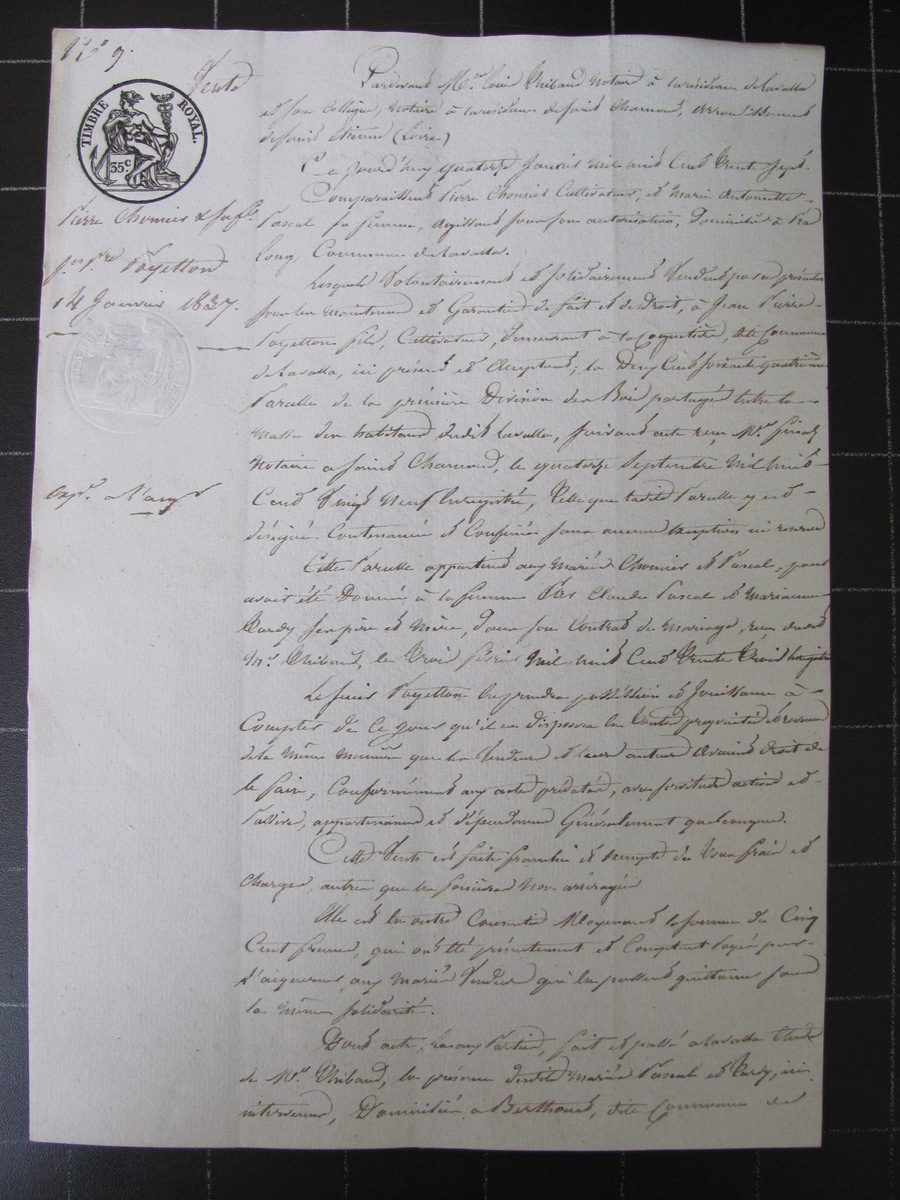 N° 9.
Vente
TIMBRE ROYAL.
35 c.
Pierre Chomier & sa fe
Jn Pre Payetton
14 Janvier 1837.
Expn. a l'acqr
Pardevant Me. Louis Thibaud Notaire à la résidence de Lavalla
et son Collègue, Notaire à la résidence de Saint Chamond, arrondissement
de Saint Etienne (Loire)
Ce Jourd'huy quatorze Janvier mil huit Cent trente sept.
Comparaissent Pierre Chomier Cultivateur, et Marie Antoinette
Pascal sa femme, agissant sous son autorisation, Domiciliés à Pra
Long, Commune de Lavalla.
Lesquels Volontairement et solidairement Vendent par ces présentes
sous les maintenue et Garantie de fait et de droit, à Jean Pierre
Payetton fils, Cultivateur, demeurant à la dite Commune
de Lavalla, ici présent et acceptant; la Deux Cent soixante quatrième
Parcelle de la première Division des Bois partagés entre la
masse des habitans dudit Lavalla, suivant acte reçu Me.
Notaire a Saint Chamond, le quatorze Septembre Mil huit
Cent Vingt Neuf Enregistré, Telle que ladite Parcelle y est
désignée Contenance et Confinée sans aucune exception ni reserve
Cette Parcelle appartient aux mariés Chomier et Pascal, pour
avoir été Donnée à la femme Par Claude Pascal et Marianne
Tardy ses père et mère, dans son Contrat de Mariage, reçu dudit
Me. Thibaud, le trois février Mil huit Cent trente trois Enregistré
Le fils Payetton En prendra possession et Jouissance à
Compter de Ce jour qu'il en disposera en toute propriété et revenu
de la même manière que les Vendeurs et leurs auteurs avaient droit de
le faire, Conformément aux actes prédatés, avec servitudes actives et
Passives, appartenances et dépendances Généralement quelconques.
Cette Vente est faite franche et exempte de tous frais et
Charges, autres que les foncières non arréragées
Elle est En outre Consentie Moyenant la somme de Cinq
Cent francs, qui ont été présentement et Comptant Payés par
L'acquéreur aux mariés Vendeurs qui En passent quittance sous
la même solidarité.
Dont acte, Lu aux Parties, fait et passé a Lavalla Etude
de Me. Thibaud, En présence desdits mariés Pascal et Tardy, ici
intervenus, Domiciliés a dite Commune de